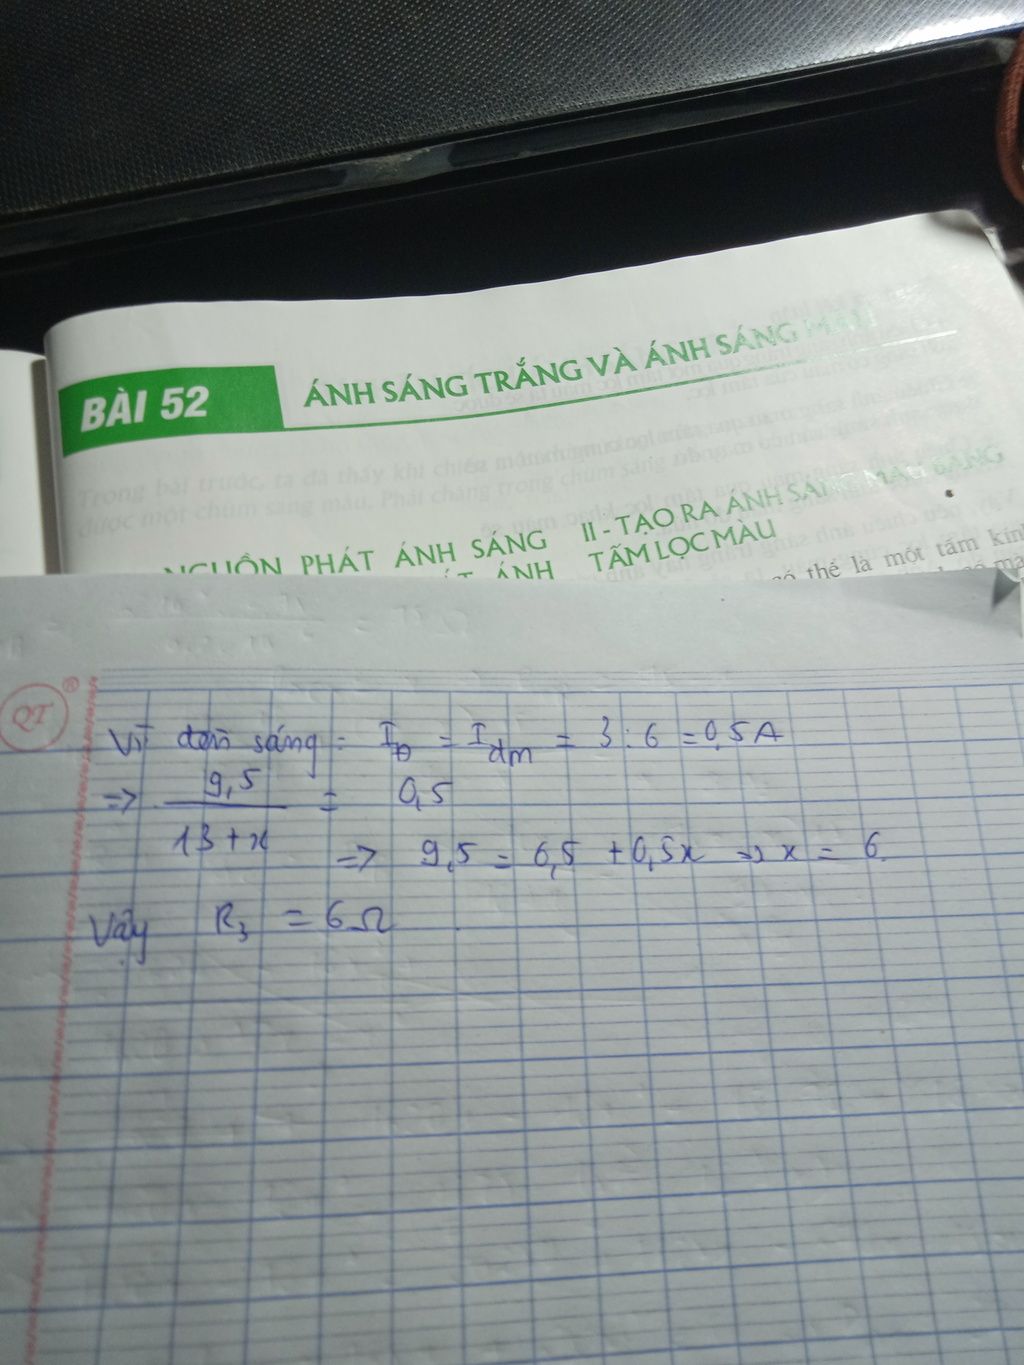 BÀI 52
ÁNH SÁNG TRẮNG VÀ ÁNH SÁNG MÀU
Trong bài trước, ta đã thấy khi chiếu
được một chùm sáng màu. Phải chăng trong chùm sáng
NGUỒN PHÁT ÁNH SÁNG
ÁNH
II - TẠO RA ÁNH SÁNG MÀU BẰNG
TẤM LỌC MÀU
có thể là một tấm kính
QT
®
Vì đèn sáng: I_Đ = I_đm = 3 : 6 = 0,5A
=> 9,5 / 13 + x = 0,5
=> 9,5 = 6,5 + 0,5x => x = 6
Vậy R₃ = 6Ω